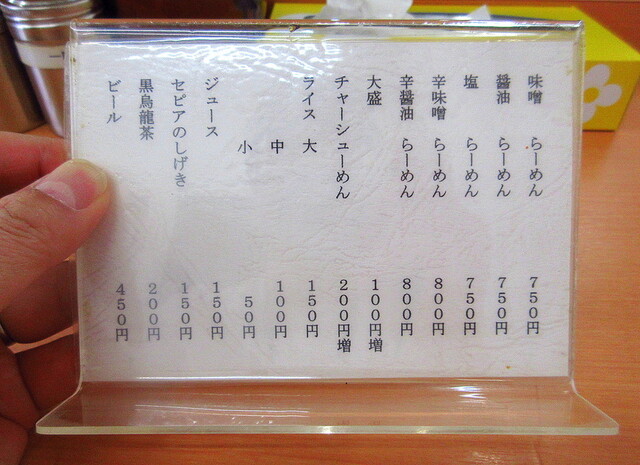 味噌 らーめん 750円
醤油 らーめん 750円
塩 らーめん 750円
辛味噌 らーめん 800円
辛醤油 らーめん 800円
大盛 100円増
チャーシューめん 200円増
ライス 大 150円
中 100円
小 50円
ジュース 150円
セピアのしげき 150円
黒烏龍茶 200円
ビール 450円